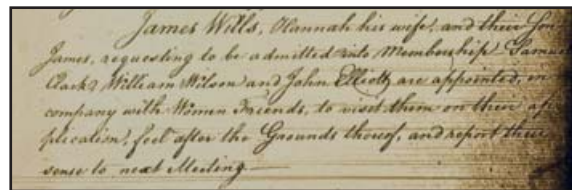 James Wills, Olannah his wife, and their Son
James, requesting to be admitted into Membership Samuel
Clark, William Wilson and John Elliott are appointed, in
company with Women Friends, to visit them on their ap
plication, feel after the Grounds thereof, and report their
sense to next Meeting